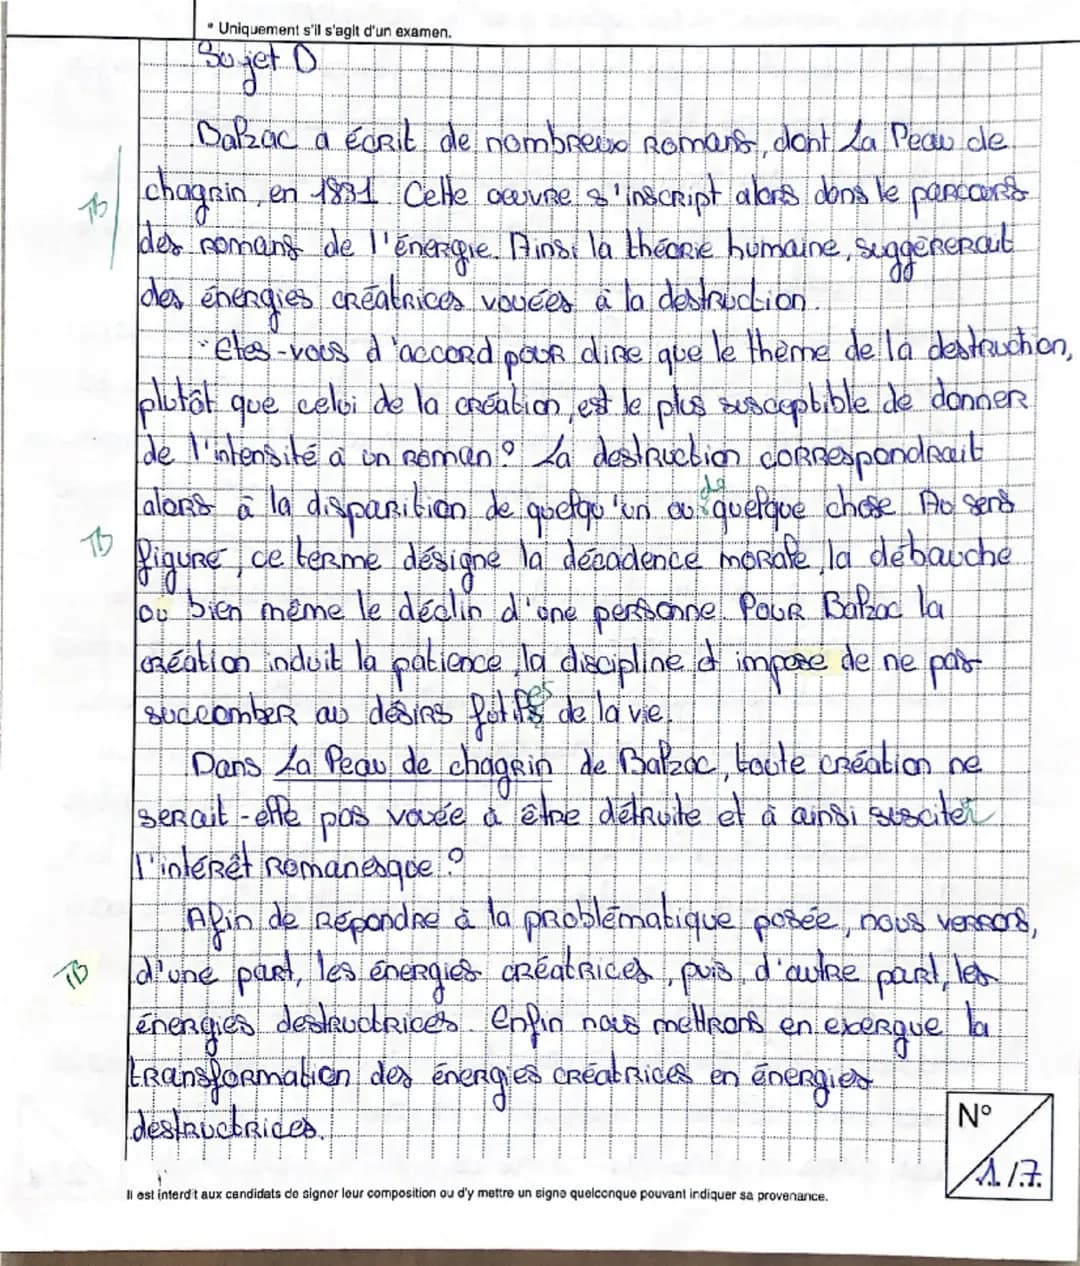 * Uniquement s'il s'agit d'un examen.
Sujet D
Balzac a écrit de nombreux romans, dont La Peau de
TB chagrin, en 1831. Cette œuvre s'inscript alors dans le parcours
des romans de l'énergie. Ainsi la théorie humaine, suggérerait
des énergies créatrices vouées à la destruction.
"Etes-vous d'accord pour dire que le thème de la destruction,
plutôt que celui de la création, est le plus susceptible de donner
de l'intensité à un roman? La destruction correspondrait
alors à la disparition de quelqu'un ou de quelque chose. Au sens
TB figuré, ce terme désigne la décadence morale, la débauche
ou bien même le déclin d'une personne. Pour Balzac la
création induit la patience, la discipline et impose de ne pas
succomber au désirs futiles de la vie.
Dans La Peau de chagrin de Balzac, toute création ne
serait-elle pas vouée à être détruite et à ainsi susciter
l'intérêt romanesque?
Afin de répondre à la problématique posée, nous verrons,
TB d'une part, les énergies créatrices, puis, d'autre part, les
énergies destructrices. Enfin nous mettrons en exergue la
transformation des énergies créatrices en énergies
destructrices.
N°
1/7.
Il est interdit aux candidats de signer leur composition ou d'y mettre un signe quelconque pouvant indiquer sa provenance.